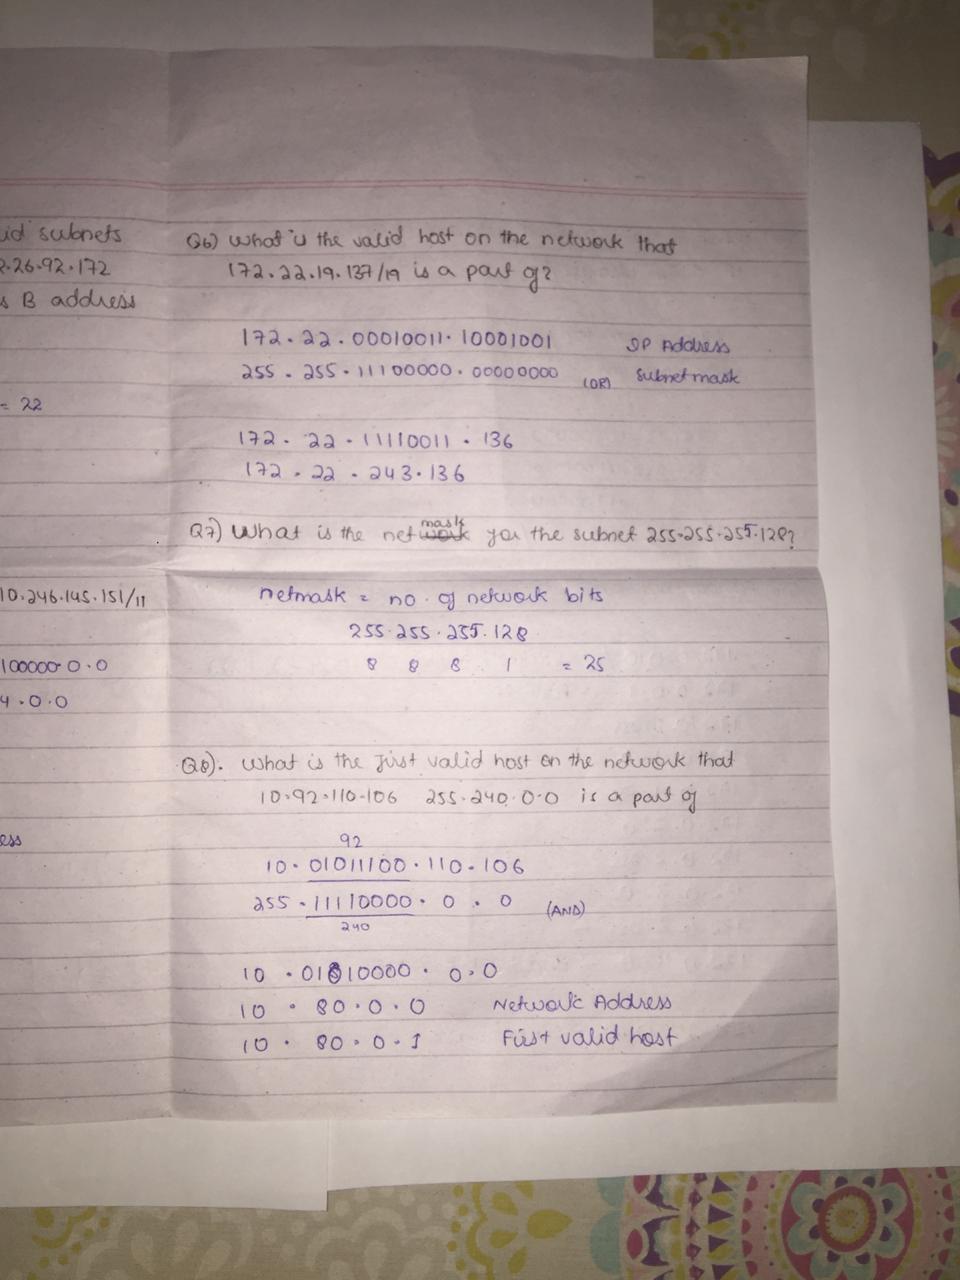 id subnets
2.26.92.172
s B address
= 22
10.246.145.151/11
100000.0.0
4.0.0
ess
Q6) What is the valid host on the network that
172.22.19.137/19 is a part of?
172.22.00010011.10001001 IP Address
255.255.11100000.00000000 (OR) Subnet mask
172.22.11110011.136
172.22.243.136
Q7) What is the netmask for the subnet 255.255.255.128?
netmask = no. of network bits
255.255.255.128
8 8 8 1 = 25
Q8). What is the first valid host on the network that
10.92.110.106 255.240.0.0 is a part of
92
10.01011100.110.106
255.11110000.0.0 (AND)
240
10.01010000.0.0
10.80.0.0 Network Address
10.80.0.1 First valid host